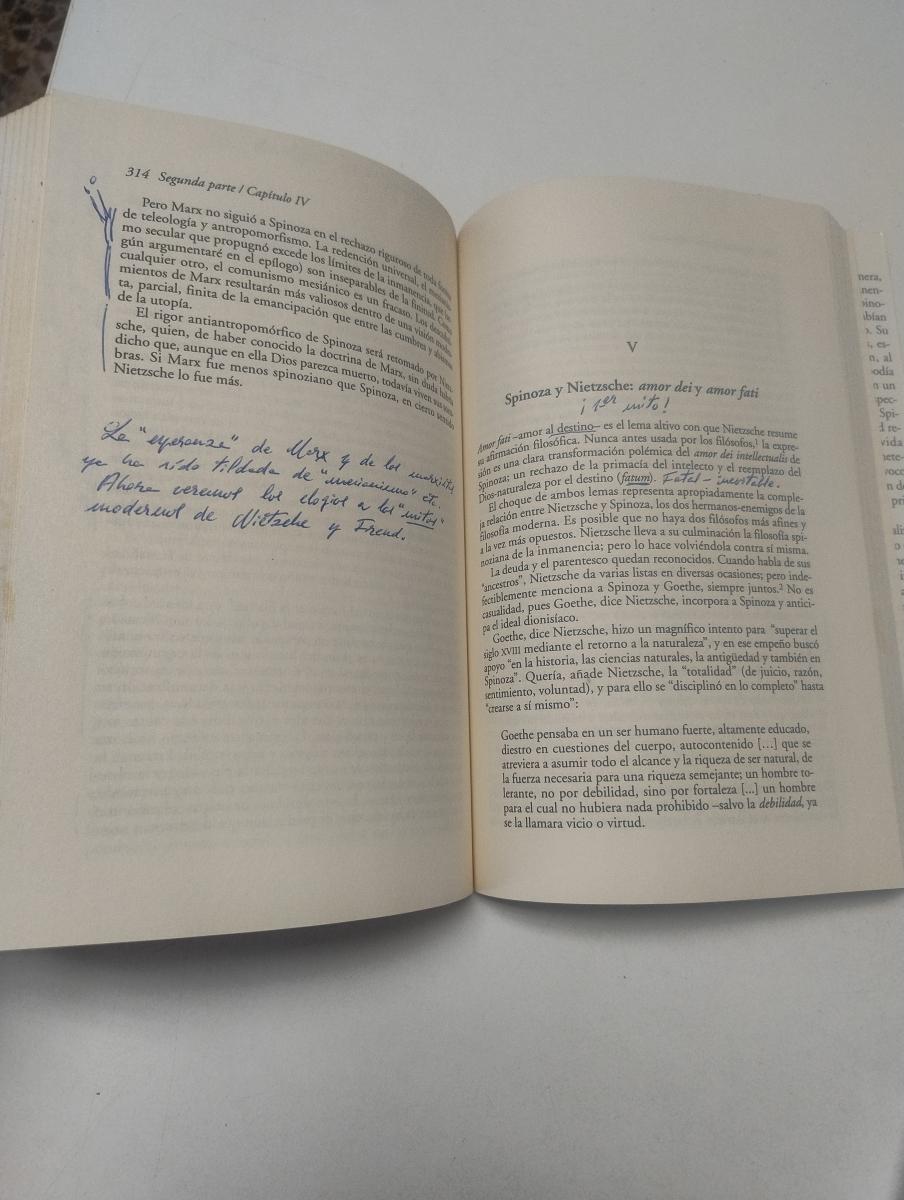 314 Segunda parte / Capítulo IV
Pero Marx no siguió a Spinoza en el rechazo riguroso de toda forma
de teleología y antropomorfismo. La redención universal, el mesianis-
mo secular que propugnó excede los límites de la inmanencia, que (se-
gún argumentaré en el epílogo) son inseparables de la finitud. Como
cualquier otro, el comunismo mesiánico es un fracaso. Los descubri-
mientos de Marx resultarán más valiosos dentro de una visión modes-
ta, parcial, finita de la emancipación que entre las cumbres y abismos
de la utopía.
El rigor antiantropomórfico de Spinoza será retomado por Nietz-
sche, quien, de haber conocido la doctrina de Marx, sin duda habría
dicho que, aunque en ella Dios parezca muerto, todavía viven sus som-
bras. Si Marx fue menos spinoziano que Spinoza, en cierto sentido
Nietzsche lo fue más.
La "esperanza" de Marx y de los marxistas
ya ha sido tildada de "mesianismo" etc.
Ahora veremos los elogios a los "mitos"
modernos de Nietzsche y Freud.
V
Spinoza y Nietzsche: amor dei y amor fati
¡1er mito!
Amor fati –amor al destino– es el lema altivo con que Nietzsche resume
su afirmación filosófica. Nunca antes usada por los filósofos,1 la expre-
sión es una clara transformación polémica del amor dei intellectualis de
Spinoza; un rechazo de la primacía del intelecto y el reemplazo del
Dios-naturaleza por el destino (fatum). Fatal - inevitable.
El choque de ambos lemas representa apropiadamente la comple-
ja relación entre Nietzsche y Spinoza, los dos hermanos-enemigos de la
filosofía moderna. Es posible que no haya dos filósofos más afines y
a la vez más opuestos. Nietzsche lleva a su culminación la filosofía spi-
noziana de la inmanencia; pero lo hace volviéndola contra sí misma.
La deuda y el parentesco quedan reconocidos. Cuando habla de sus
"ancestros", Nietzsche da varias listas en diversas ocasiones; pero inde-
fectiblemente menciona a Spinoza y Goethe, siempre juntos.2 No es
casualidad, pues Goethe, dice Nietzsche, incorpora a Spinoza y antici-
pa el ideal dionisíaco.
Goethe, dice Nietzsche, hizo un magnífico intento para "superar el
siglo XVIII mediante el retorno a la naturaleza", y en ese empeño buscó
apoyo "en la historia, las ciencias naturales, la antigüedad y también en
Spinoza". Quería, añade Nietzsche, la "totalidad" (de juicio, razón,
sentimiento, voluntad), y para ello se "disciplinó en lo completo" hasta
"crearse a sí mismo":
Goethe pensaba en un ser humano fuerte, altamente educado,
diestro en cuestiones del cuerpo, autocontenido [...] que se
atreviera a asumir todo el alcance y la riqueza de ser natural, de
la fuerza necesaria para una riqueza semejante; un hombre to-
lerante, no por debilidad, sino por fortaleza [...] un hombre
para el cual no hubiera nada prohibido –salvo la debilidad, ya
se la llamara vicio o virtud.